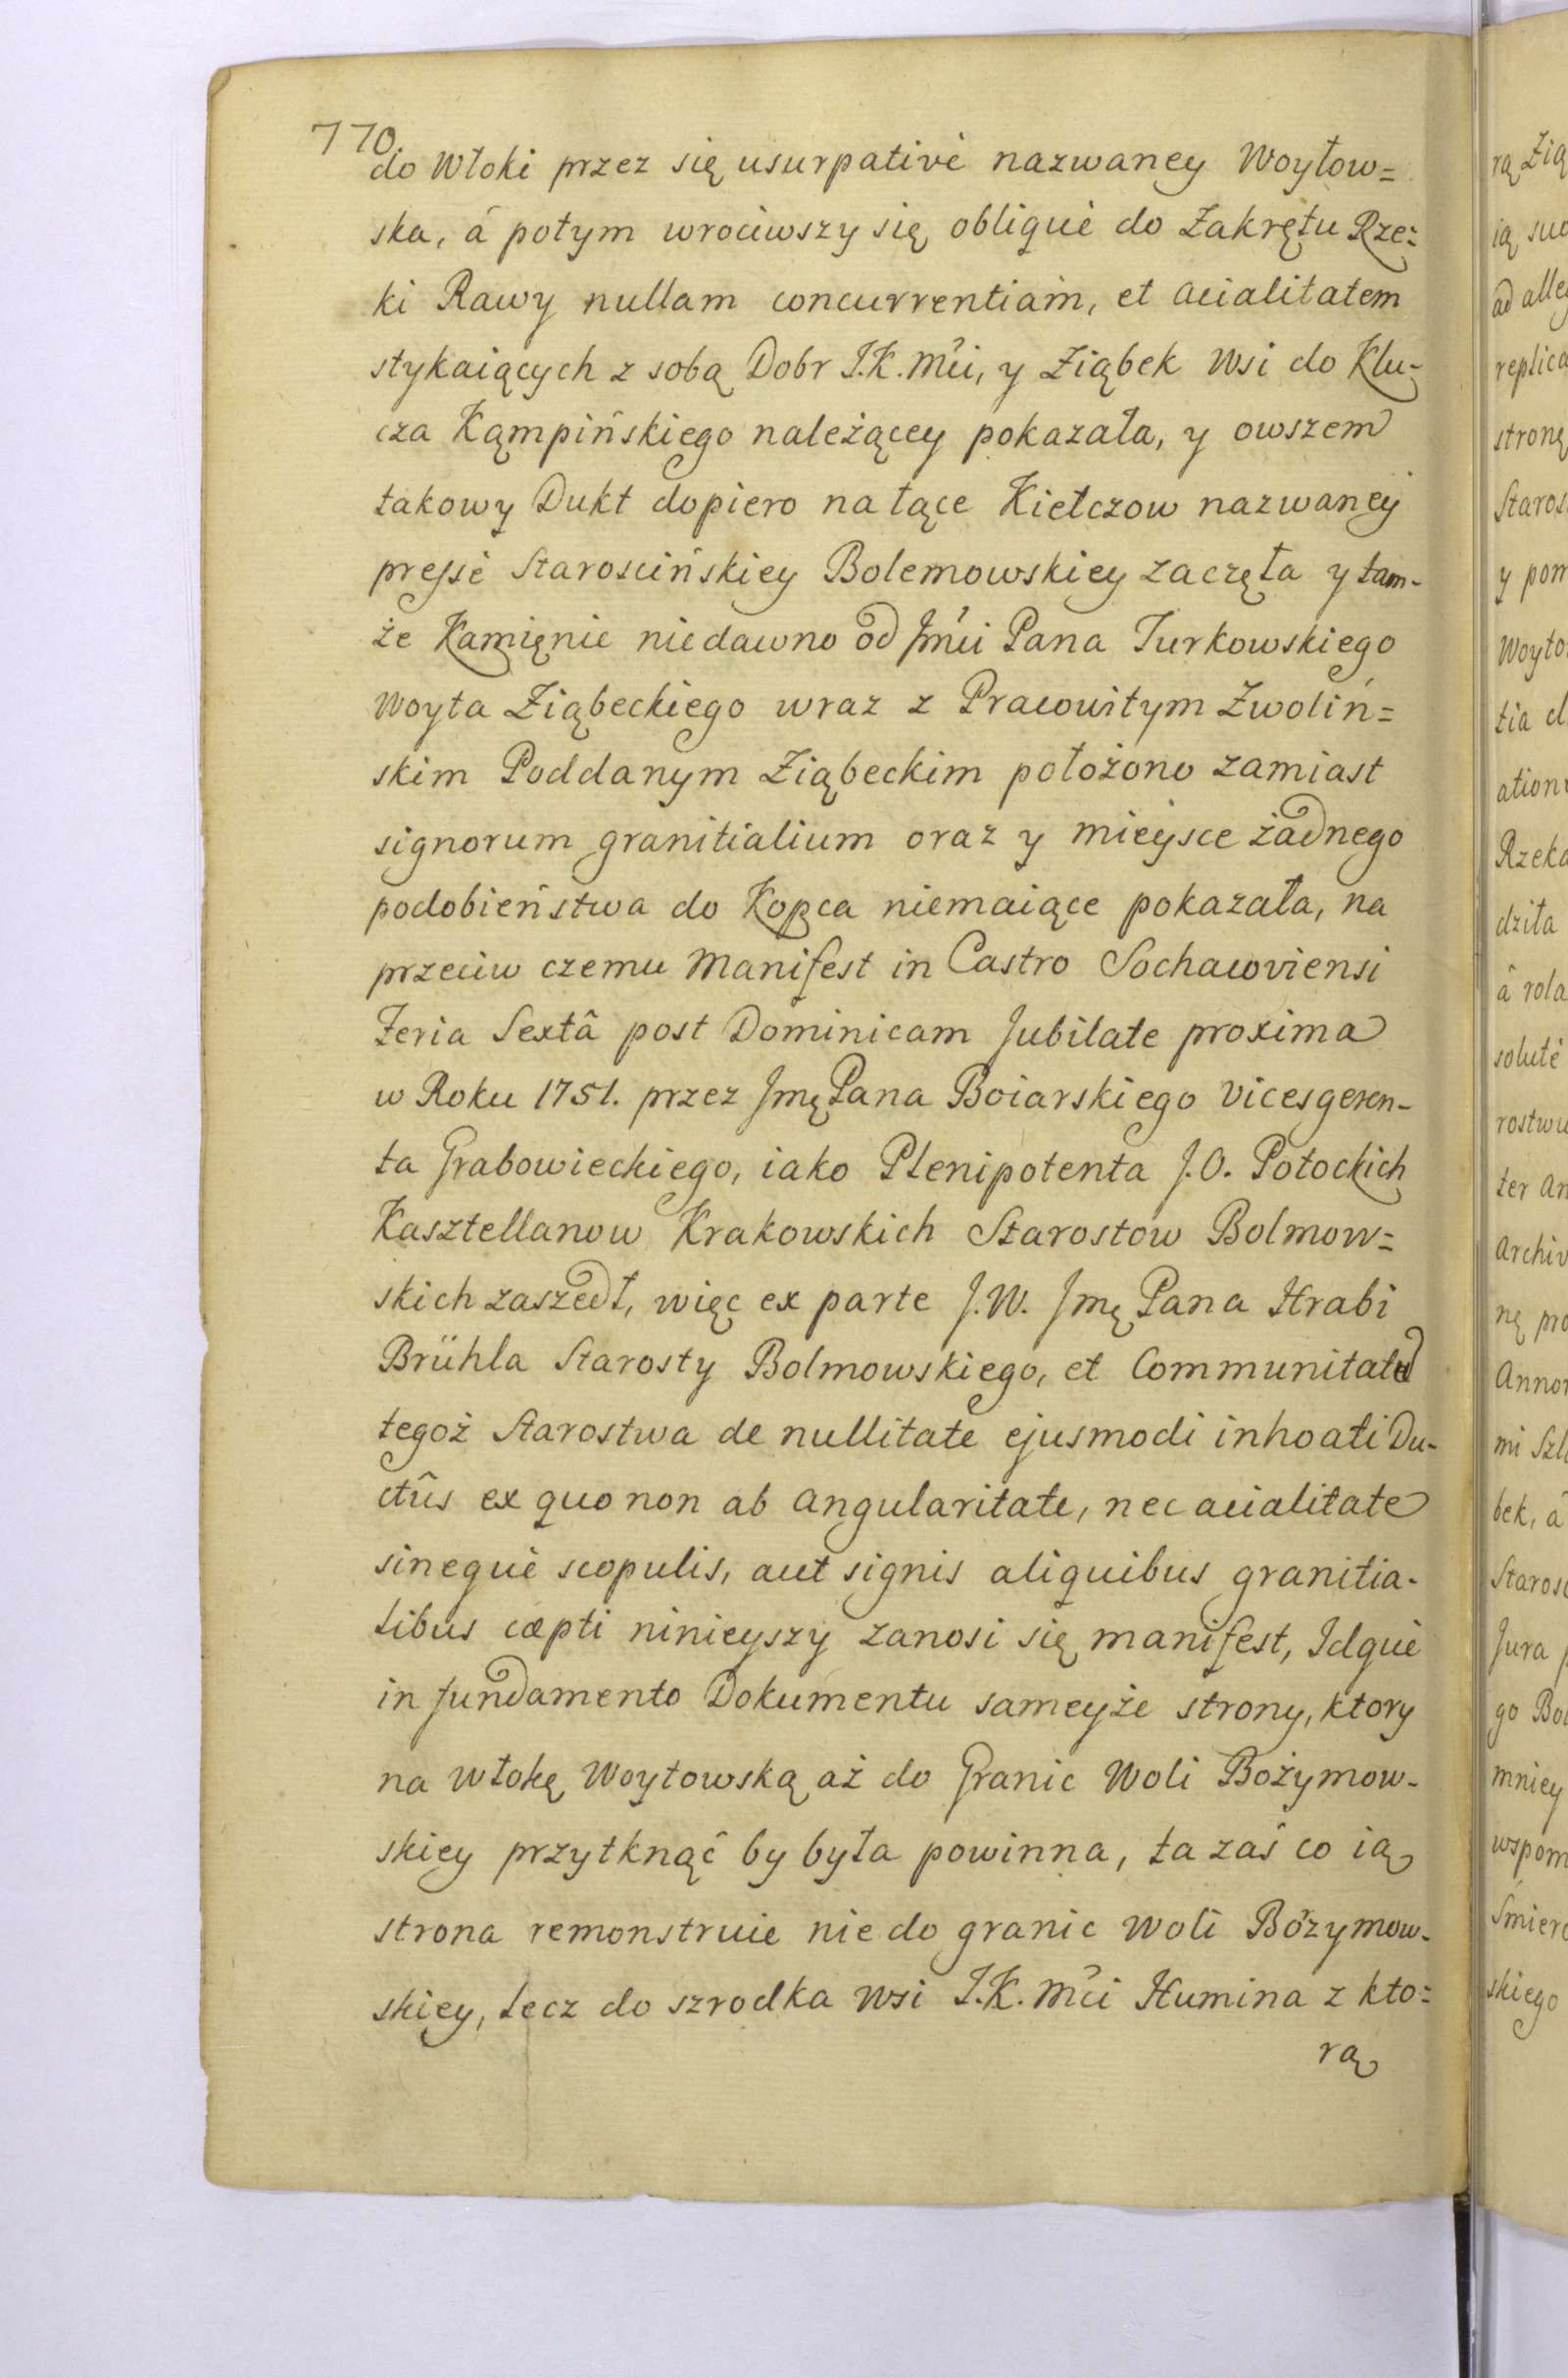 770.
do Włoki przez się usurpativè nazwaney Woytow=
ska, á potym wrociwszy się obliquè do Zakrętu Rze=
ki Rawy nullam concurrentiam, et acialitatem
stykaiących z sobą Dobr J.K.Mći, y Ziąbek Wsi do Klu-
cza Kąmpińskiego należącey pokazała, y owszem
takowy Dukt dopiero na łące Kiełczow nazwaney
pressè Staroscińskiey Bolemowskiey zaczęła y tam-
że Kamięnie niedawno od Jmći Pana Turkowskiego
Woyta Ziąbeckiego wraz z Pracowitym Zwoliń=
skim Poddanym Ziąbeckim położono zamiast
signorum granitialium oraz y mieysce żadnego
podobieństwa do Kopca niemaiące pokazała, na
przeciw czemu Manifest in Castro Sochacoviensi
Feria Sextâ post Dominicam Jubilate proxima
w Roku 1751. przez Jmę Pana Boiarskiego Vicesgeren-
ta Grabowieckiego, iako Plenipotenta J.O. Potockich
Kasztellanow Krakowskich Starostow Bolmow=
skich zaszedł, więc ex parte J.W. Jmę Pana Hrabi
Brühla Starosty Bolmowskiego, et Communitate
tegoż Starostwa de nullitate ejusmodi inhoati Du-
ctûs ex quo non ab angularitate, nec acialitate
sinequè scopulis, aut signis aliquibus granitia-
libus cæpti ninieyszy zanosi się manifest, Idquè
in fundamento Dokumentu sameyże strony, ktory
na włokę Woytowską aż do Granic Woli Bożymow-
skiey przytknąć by była powinna, ta zaś co ią
strona remonstruie nie do granic Woli Bożymow-
skiey, lecz do szrodka Wsi J.K.Mći Humina z kto=
rą
rą Zią
ią suc
ad alle
replica
stronę
Staros
y pom
Woyto
tia d
ation
Rzeka
dziła
â rola
solutè
rostwu
ter An
Archiv
nę pro
Annor
mi Szl
bek, á
Starosc
Jura p
go Bol
mniey
wspom
Śmierc
skiego